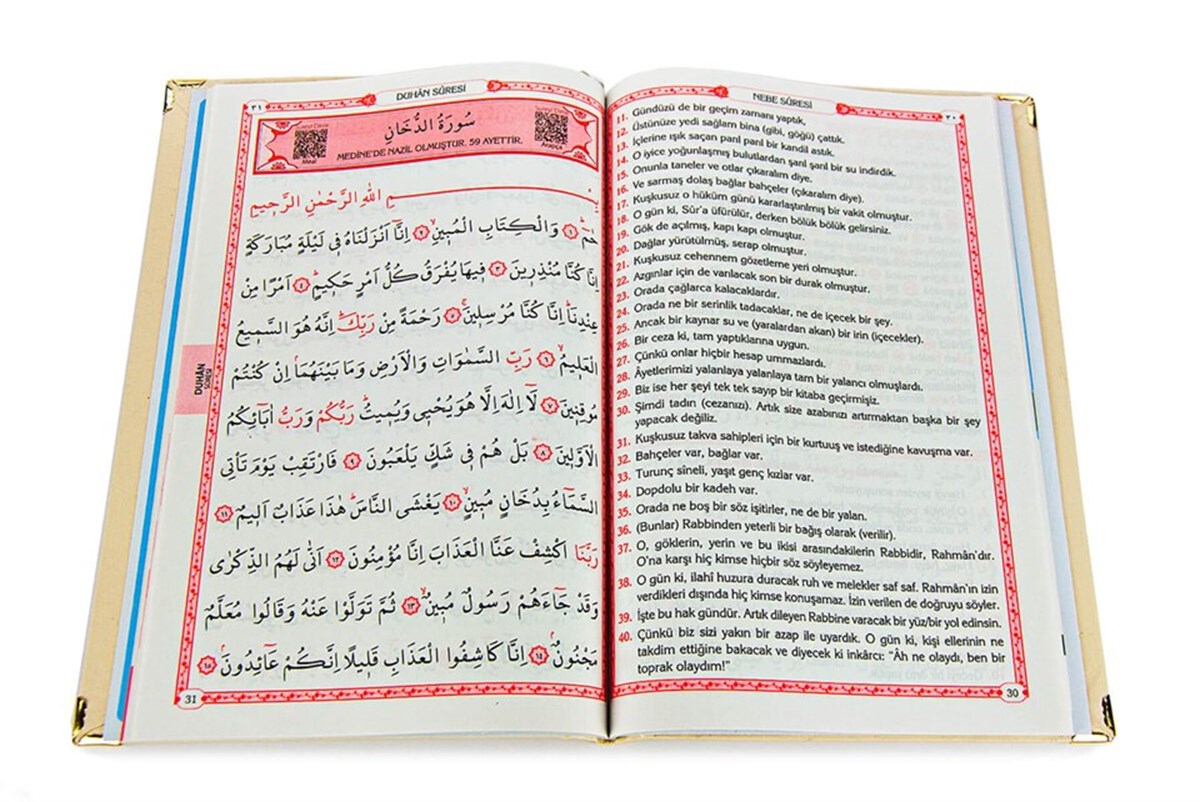 NEBE SÛRESİ
٣٠
11. Gündüzü de bir geçim zamanı yaptık.
12. Üstünüze yedi sağlam bina (gibi, göğü) çattık.
13. İçlerine ışık saçan parıl parıl bir kandil astık.
14. O iyice yoğunlaşmış bulutlardan şarıl şarıl bir su indirdik.
15. Onunla taneler ve otlar çıkaralım diye.
16. Ve sarmaş dolaş bağlar bahçeler (çıkaralım diye).
17. Kuşkusuz o hüküm günü kararlaştırılmış bir vakit olmuştur.
18. O gün ki, Sûr'a üfürülür, derken bölük bölük gelirsiniz.
19. Gök de açılmış, kapı kapı olmuştur.
20. Dağlar yürütülmüş, serap olmuştur.
21. Kuşkusuz cehennem gözetleme yeri olmuştur.
22. Azgınlar için de varılacak son bir durak olmuştur.
23. Orada çağlarca kalacaklardır.
24. Orada ne bir serinlik tadacaklar, ne de içecek bir şey.
25. Ancak bir kaynar su ve (yaralardan akan) bir irin (içecekler).
26. Bir ceza ki, tam yaptıklarına uygun.
27. Çünkü onlar hiçbir hesap ummazlardı.
28. Âyetlerimizi yalanlaya yalanlaya tam bir yalancı olmuşlardı.
29. Biz ise her şeyi tek tek sayıp bir kitaba geçirmişiz.
30. Şimdi tadın (cezanızı). Artık size azabınızı artırmaktan başka bir şey
yapacak değiliz.
31. Kuşkusuz takva sahipleri için bir kurtuuş ve istediğine kavuşma var.
32. Bahçeler var, bağlar var.
33. Turunç sineli, yaşıt genç kızlar var.
34. Dopdolu bir kadeh var.
35. Orada ne boş bir söz işitirler, ne de bir yalan.
36. (Bunlar) Rabbinden yeterli bir bağış olarak (verilir).
37. O, göklerin, yerin ve bu ikisi arasındakilerin Rabbidir, Rahmân'dır.
O'na karşı hiç kimse hiçbir söz söyleyemez.
38. O gün ki, ilahî huzura duracak ruh ve melekler saf saf. Rahmân'ın izin
verdikleri dışında hiç kimse konuşamaz. İzin verilen de doğruyu söyler.
39. İşte bu hak gündür. Artık dileyen Rabbine varacak bir yüz/bir yol edinsin.
40. Çünkü biz sizi yakın bir azap ile uyardık. O gün ki, kişi ellerinin ne
takdim ettiğine bakacak ve diyecek ki inkârcı: "Âh ne olaydı, ben bir
toprak olaydım!"
30
٣١
DUHÂN SÛRESİ
سُورَةُ الدُّخَانِ
MEDİNE'DE NAZİL OLMUŞTUR. 59 AYETTİR.
Meal
Arapça
بِسْمِ اللّٰهِ الرَّحْمٰنِ الرَّحِيمِ
حٰمٓ ﴿١﴾ وَالْكِتَابِ الْمُبِينِ ﴿٢﴾ اِنَّٓا اَنْزَلْنَاهُ فِي لَيْلَةٍ مُبَارَكَةٍ
اِنَّا كُنَّا مُنْذِرِينَ ﴿٣﴾ فِيهَا يُفْرَقُ كُلُّ اَمْرٍ حَكِيمٍ ﴿٤﴾ اَمْرًا مِنْ
عِنْدِنَا اِنَّا كُنَّا مُرْسِلِينَ ﴿٥﴾ رَحْمَةً مِنْ رَبِّكَ اِنَّهُ هُوَ السَّمِيعُ
الْعَلِيمُ ﴿٦﴾ رَبِّ السَّمٰوَاتِ وَالْاَرْضِ وَمَا بَيْنَهُمَا اِنْ كُنْتُمْ
مُوقِنِينَ ﴿٧﴾ لَٓا اِلٰهَ اِلَّا هُوَ يُحْيِي وَيُمِيتُ رَبُّكُمْ وَرَبُّ اٰبَٓائِكُمُ
الْاَوَّلِينَ ﴿٨﴾ بَلْ هُمْ فِي شَكٍّ يَلْعَبُونَ ﴿٩﴾ فَارْتَقِبْ يَوْمَ تَأْتِي
السَّمَٓاءُ بِدُخَانٍ مُبِينٍ ﴿١٠﴾ يَغْشَى النَّاسَ هٰذَا عَذَابٌ اَلِيمٌ ﴿١١﴾
رَبَّنَا اكْشِفْ عَنَّا الْعَذَابَ اِنَّا مُؤْمِنُونَ ﴿١٢﴾ اَنّٰى لَهُمُ الذِّكْرٰى
وَقَدْ جَٓاءَهُمْ رَسُولٌ مُبِينٌ ﴿١٣﴾ ثُمَّ تَوَلَّوْا عَنْهُ وَقَالُوا مُعَلَّمٌ
مَجْنُونٌ ﴿١٤﴾ اِنَّا كَاشِفُوا الْعَذَابِ قَلِيلًا اِنَّكُمْ عَٓائِدُونَ ﴿١٥﴾
DUHÂN
SÛRESİ
31